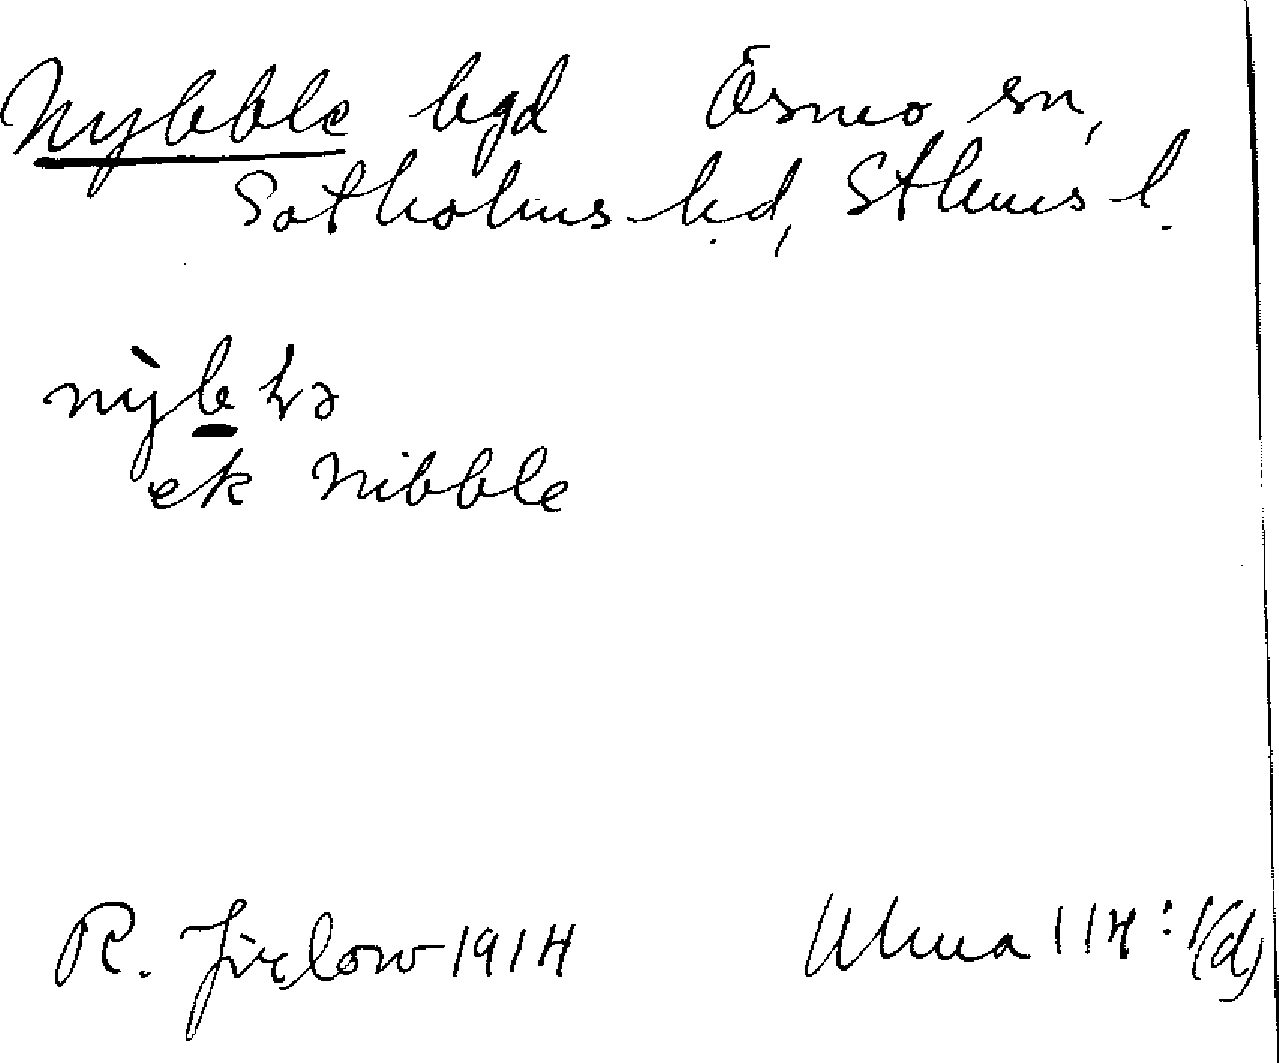 Nybble bgd Ösmo sn,
Sotholms hd, Sthms l.
ek Nibble
R. Jirlow 1914 Ulma 114:1(d)